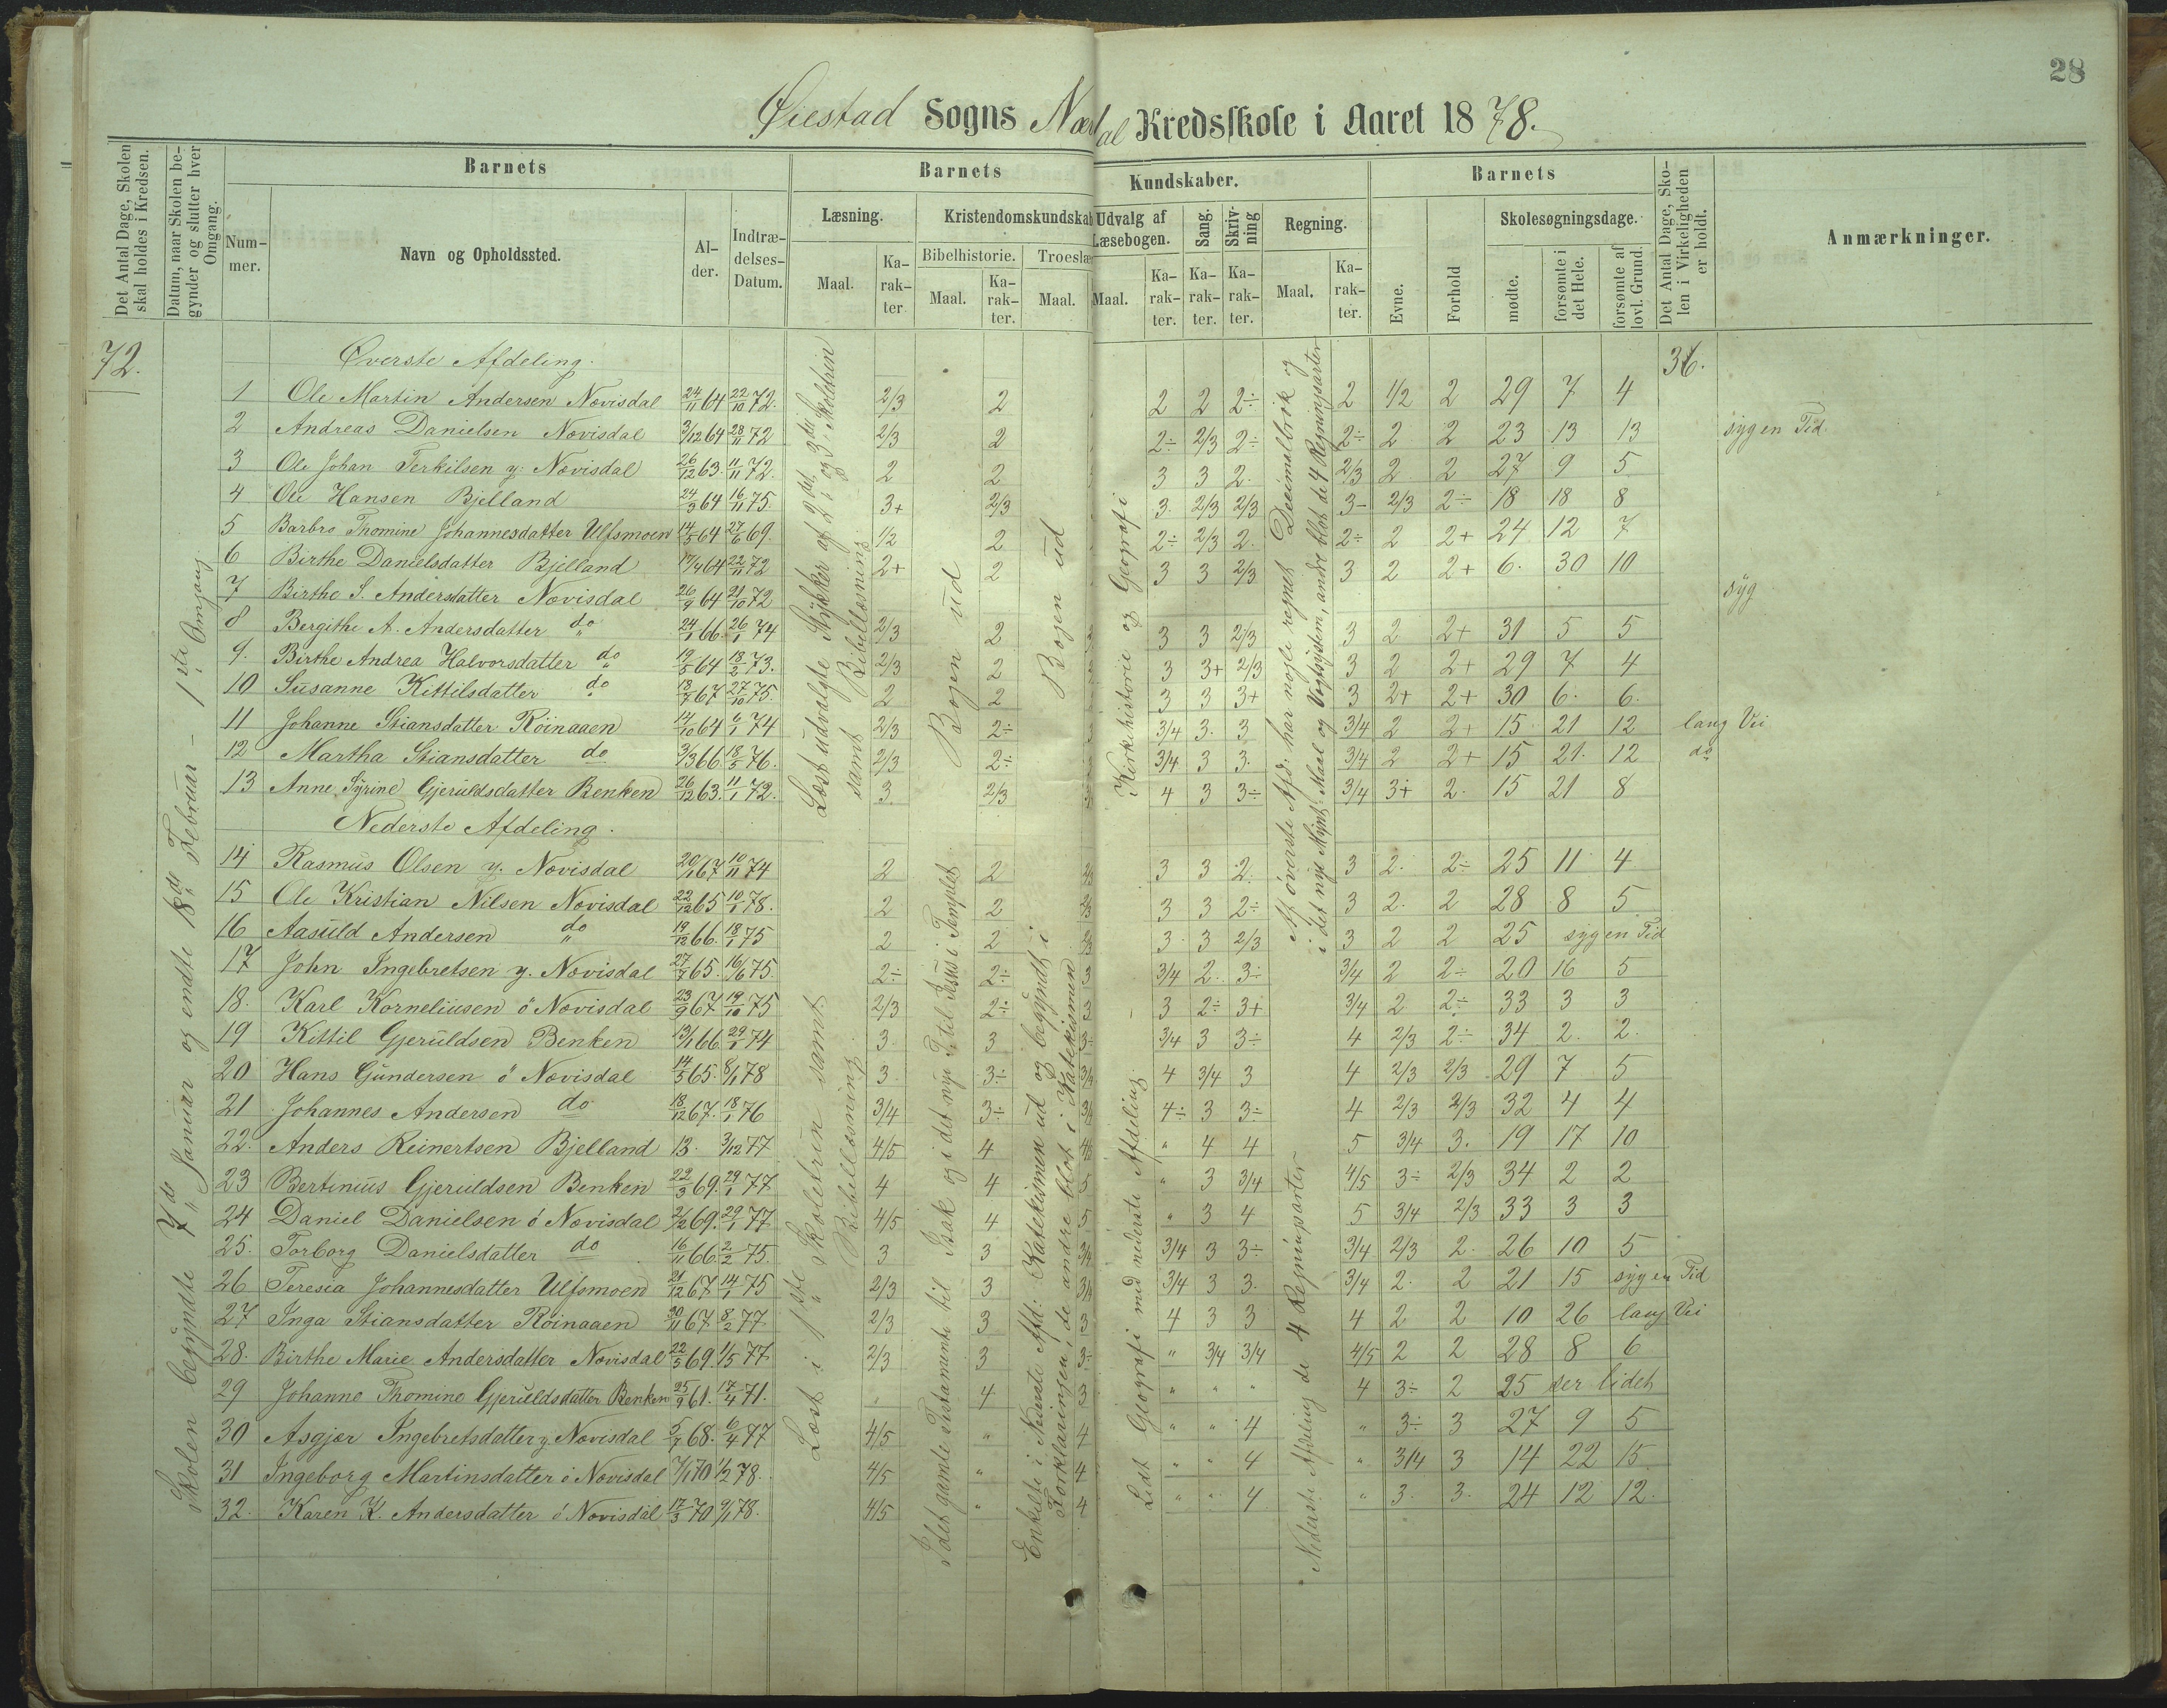 28
Øiestad Sogns Nærdal Kredsskole i Aaret 1878.
Det Antal Dage, Skolen skal holdes i Kredsen.
Datum, naar Skolen begynder og slutter hver Omgang.
Barnets
Nummer.
Navn og Opholdssted.
Alder.
Indtrædelses-Datum.
Barnets Kundskaber.
Læsning.
Maal.
Karakter.
Kristendomskundskab
Bibelhistorie.
Maal.
Karakter.
Troeslæ
Maal.
Udvalg af Læsebogen.
Maal.
Karakter.
Sang.
Karakter.
Skrivning
Karakter.
Regning.
Maal.
Karakter.
Barnets
Evne.
Forhold
Skolesøgningsdage.
mødte.
forsømte i det Hele.
forsømte af lovl. Grund.
Det Antal Dage, Skolen i Virkeligheden er holdt.
Anmærkninger.
72.
36.
Skolen begyndte 7de Januar og endte 18de Februar - 1ste Omgang
Øverste Afdeling.
1 Ole Martin Andersen Novisdal 24/11 64 22/10 72. 2/3 2 2 2 2÷ 2 1/2 2 29 7 4
2 Andreas Danielsen Novisdal 3/12 64 28/11 72 2/3 2 2÷ 2/3 2÷ 2÷ 2 2 23 13 13 syg en Tid.
3 Ole Johan Terkilsen y: Novisdal 26/12 63. 11/11 72. 2 2 3 3 2. 2/3 2 2 27 9 5
4 Ole Hansen Bjelland 24/3 64 16/11 75. 3+ 2/3 3. 2/3 2/3 3- 2/3 2÷ 18 18 8
5 Barbro Thomine Johannesdatter Ulfsmoen 14/5 64 27/6 69. 1/2 2 2÷ 2/3 2. 2÷ 2 2+ 24 12 7
6 Birthe Danielsdatter Bjelland 17/4 64 22/11 72 2+ 2 3 3 2/3 3 2 2+ 6. 30 10
7 Birthe S. Andersdatter Novisdal 26/9 64 21/10 72 syg
8 Bergithe A. Andersdatter do 24/1 66. 26/1 74 2/3 2 3 3 2/3 3 2 2+ 31 5 5
9. Birthe Andrea Halvorsdatter do 19/5 64 13/2 73. 2/3 2 3 3+ 2/3 3 2 2+ 29 7 4
10 Susanne Kittilsdatter do 13/7 67 27/10 75. 2 2 3 3 3+ 3 2+ 2+ 30 6. 6.
11 Johanne Stiansdatter Röinaaen 14/10 64 6/1 74 2/3 2÷ 3/4 3. 3 3/4 2 2+ 15. 21 12 lang Vei
12 Martha Stiansdatter do 3/3 66 18/5 76. 2/3 2÷ 3/4 3 3. 3/4 2 2+ 15 21. 12 do
13 Anne Syrine Gjeruldsdatter Benken 26/12 63. 11/1 72. 3 2/3 4 3 3÷ 3/4 3+ 2. 15 21 8
Læst udvalgte Stykker af 2det og 3die Skoletrin samt Bibellæsning
Bogen ud
Bogen ud
Kirkehistorie og Geografi
Af øverste Afd: har nogle regnet Decimalbrøk og i det nye Mynt: Maal og Vægtsystem, andre blot de 4 Regningsarter
Nederste Afdeling.
14 Rasmus Olsen y. Novisdal 20/1 67 10/11 74 2 2 2/3 3 3 2. 3 2. 2÷ 25 11 4
15 Ole Kristian Nilsen Novisdal 22/12 65 10/1 78. 2 2 2/3 3 3 2÷ 3 2. 2 28 8 5
16 Aasuld Andersen do 19/12 66. 18/1 75 2 2 2/3 3 3 2/3 3 2 2 25 syg en Tid
17 John Ingebretsen y. Novisdal 27/7 65. 16/6 75. 2÷ 2÷ 3 3/4 2. 3÷ 3/4 2 2÷ 20 16 5
18. Karl Korneliusen ö Novisdal 23/9 67 19/10 75 2/3 2÷ 3 3 2÷ 3+ 3/4 2 2÷ 33 3 3
19 Kittil Gjeruldsen Benken 13/1 66. 29/1 74 3. 3 3÷ 3/4 3 3÷ 4 2/3 2÷ 34 2. 2.
20 Hans Gundersen ö Novisdal 14/5 65. 8/1 78 3. 3÷ 3/4 4 3/4 3 4 2/3 2/3 29 7 5
21 Johannes Andersen do 18/12 67. 18/1 76 3/4 3÷ 3/4 4÷ 3 3÷ 4 2/3 2/3 32 4 4
22. Anders Reinertsen Bjelland 13. 3/12 77 4/5 4 4/5 " 4 4 5 3/4 3. 19 17 10
23 Bertinius Gjeruldsen Benken 22/3 69. 29/1 77 4 4 5 " 3 3/4 4/5 3÷ 2/3 34 2 2
24 Daniel Danielsen ö Novisdal 2/2 69. 29/1 77 4/5 4 5 " 3 4 5 3/4 2/3 33 3 3
25. Torborg Danielsdatter do 16/11 66. 2/2 75. 3 3 3/4 3/4 3 3÷ 3/4 2/3 2. 26 10 5
26 Teresia Johannesdatter Ulfsmoen 21/12 67 14/1 75 2/3 3 3/4 3/4 3 3. 3/4 2. 2 21 15 syg en Tid
27 Inga Stiansdatter Röinaaen 30/11 67 8/2 77. 2/3 3 3 4 3 3 4 2 2 10 26 lang Vei
28. Birthe Marie Andersdatter Novisdal 22/5 69. 1/5 77 2/3 3 3÷ " 3/4 3/4 4/5 2 2 28 8 6
29 Johanne Thomine Gjeruldsdatter Benken 25/9 61. 17/4 71. " 4 3 " " " 4 3÷ 2 25 ser lidet
30 Asgjær Ingebretsdatter y Novisdal 5/7 68. 6/4 77 4/5 " 4 " " 4 " 3÷ 3 27 9 5
31 Ingeborg Martinsdatter ö Novisdal 7/1 70 1/2 78. 4/5 " 4 " " 4 " 3/4 3 14 22 15
32. Karen K. Andersdatter ö Novisdal 17/3 70 9/1 78. 4/5 " 4 " " 4 " 3. 3. 24 12 12.
Læst i 1ste Skoletrin samt Bibellæsning.
I det gamle Testamente til Isak og i det nye T. til Jesus i Templet.
Enkelte i Nederste Afd: Katekismen ud og begyndt i Forklaaringen, de andre blot i Katekismen
Lidt Geografi med nederste Afdeling.
Nederste Afdeling de 4 Regningsarter